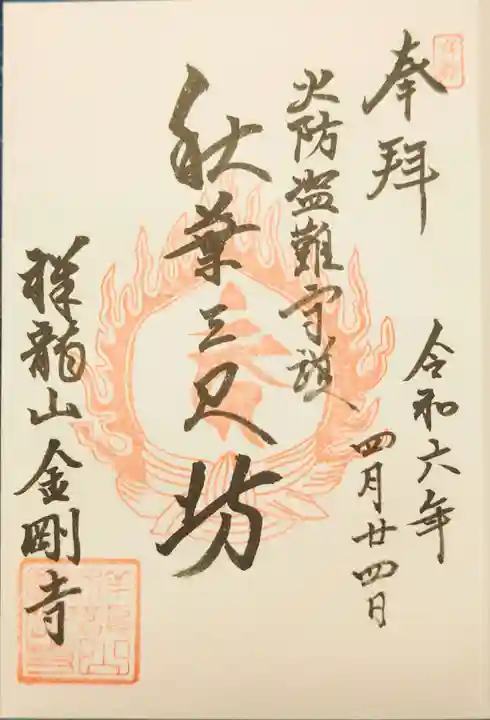 奉拝
令和六年
四月廿四日
火防盗難守護
秋葉三尺坊
祥龍山金剛寺